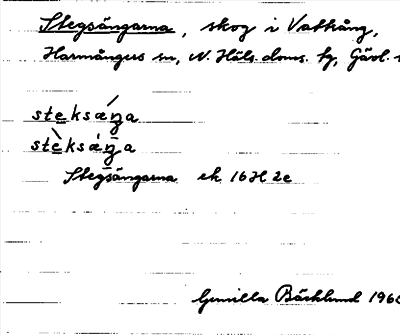 Stegsängarna, skog i Vattlång,
Harmångers sn, N. Häls. doms. fg, Gävl.
steksáŋa
stèksàŋa
Stegsängarna ek. 16H 2e
Gunilla Bäcklund 1960